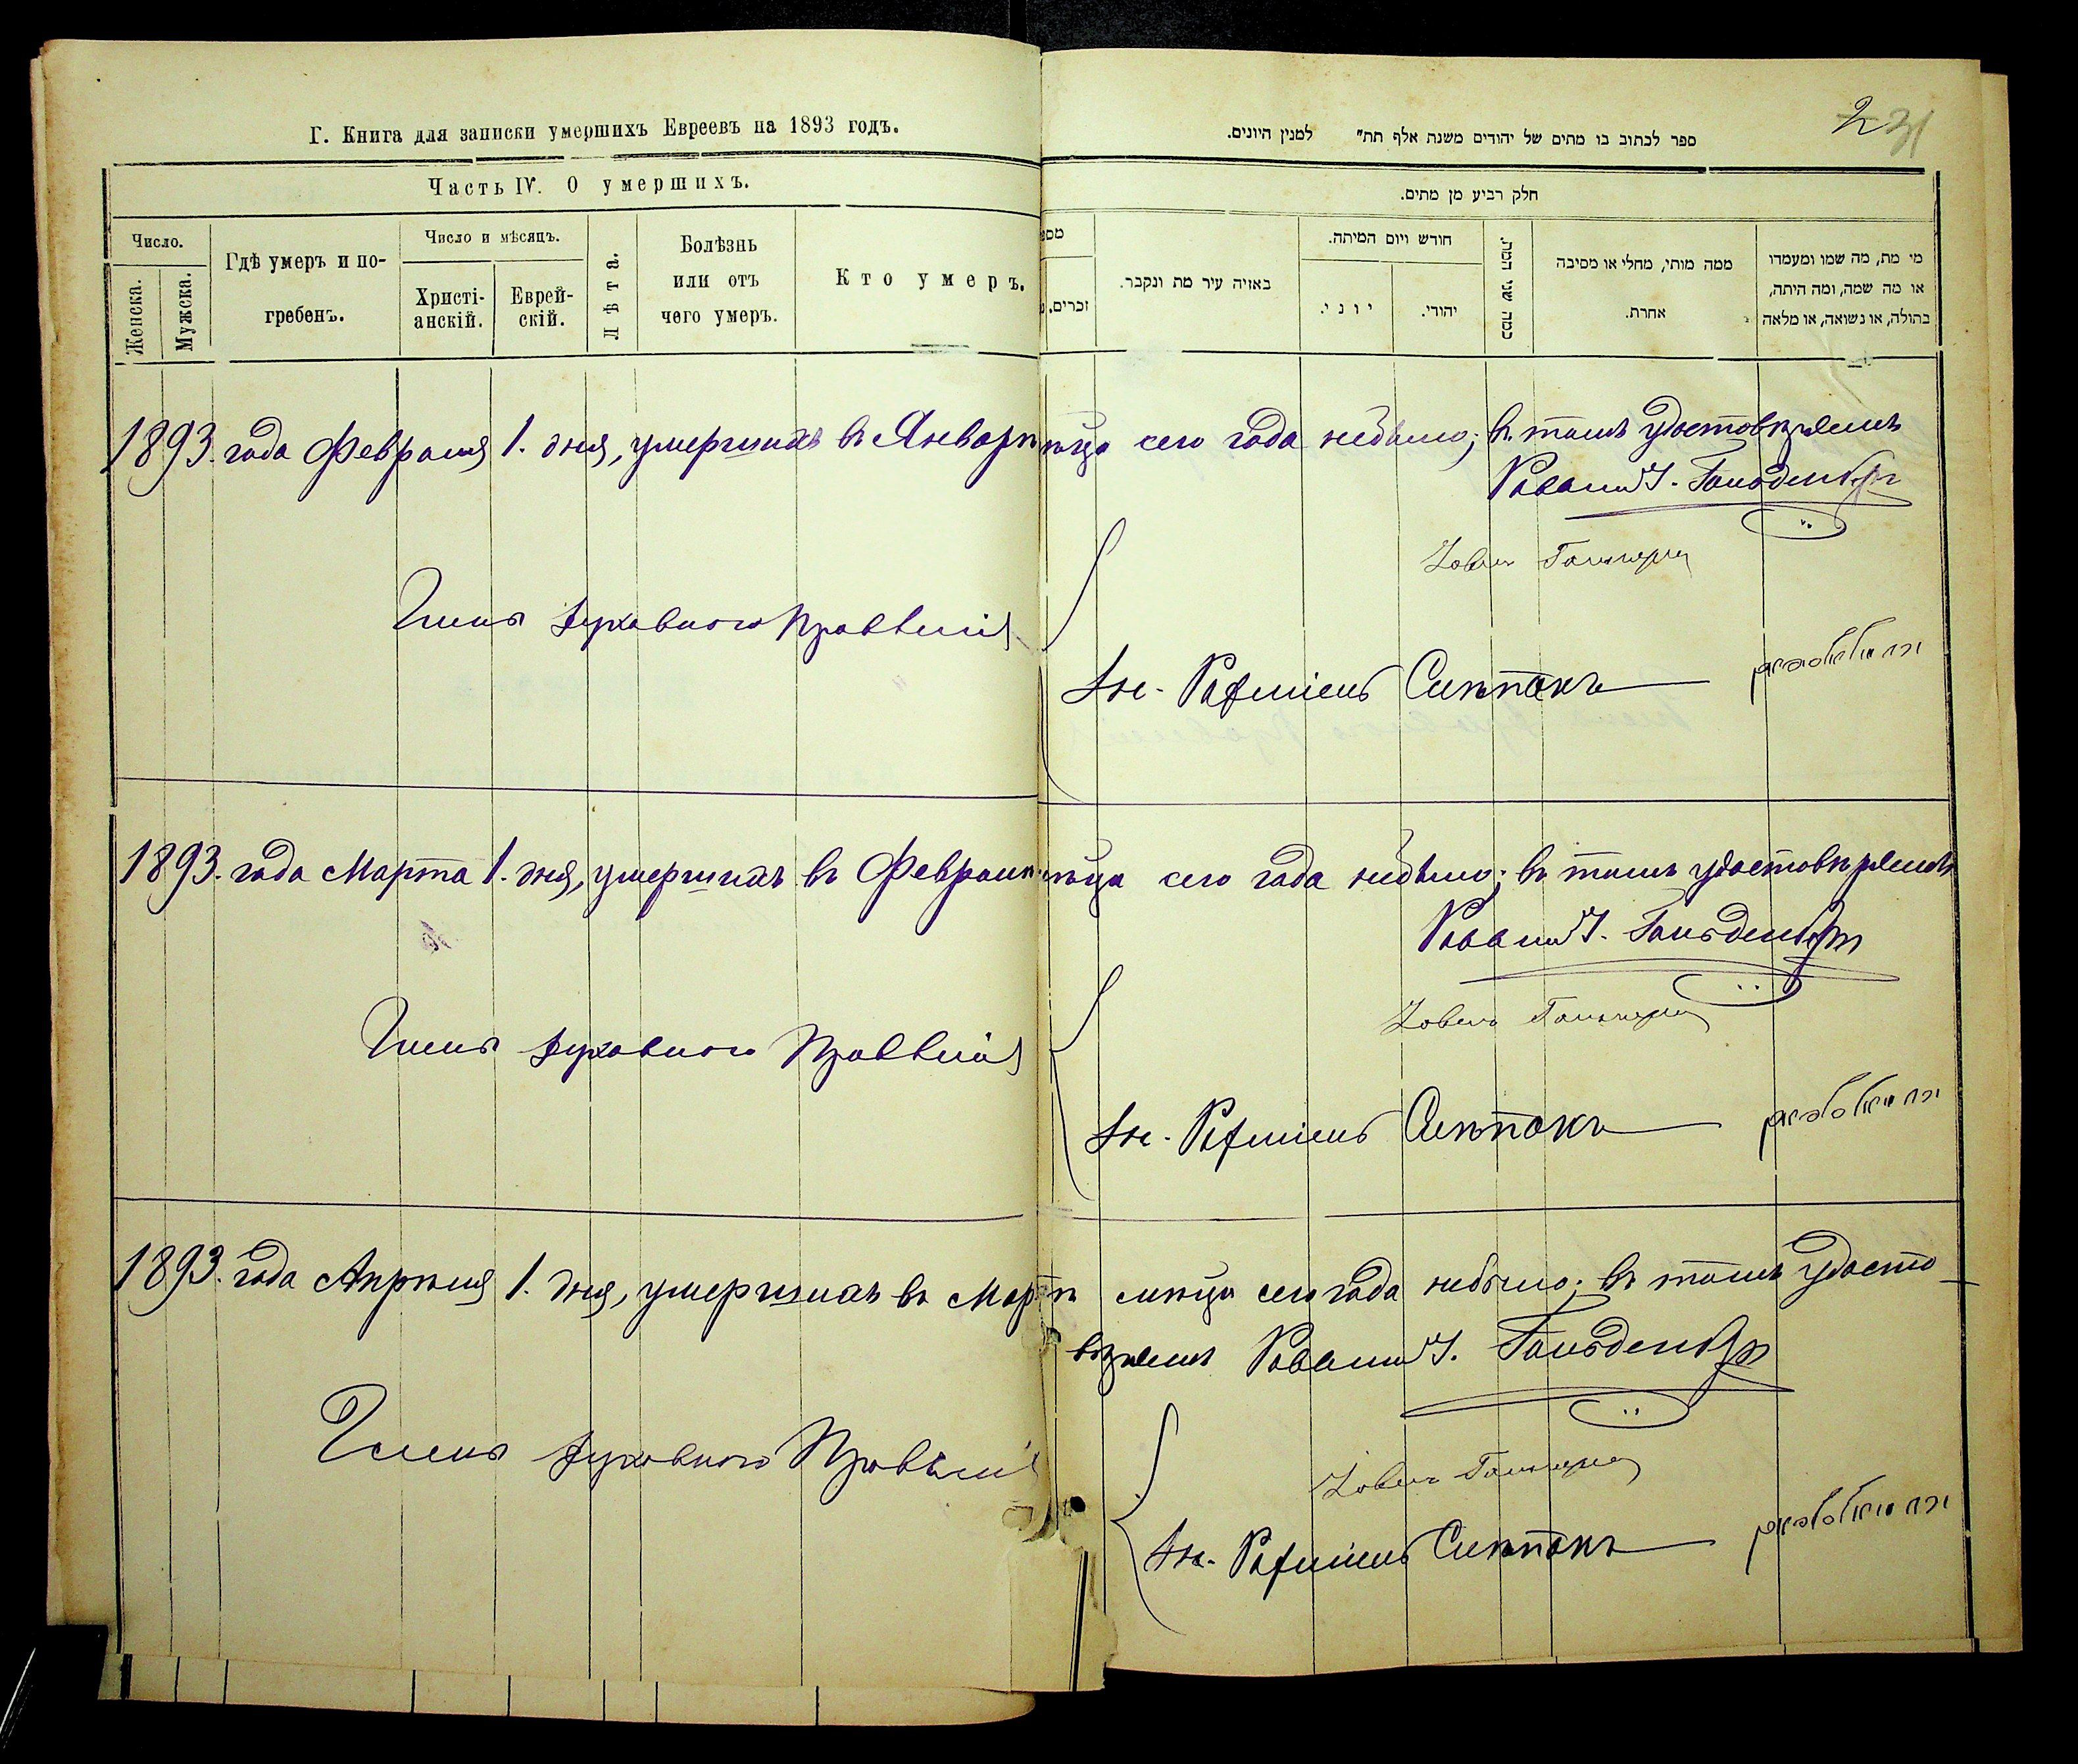 Г. Книга для записки умершихъ Евреевъ на 1893 годъ.
ספר לכתוב בו מתים של יהודים משנת אלף תת״ למנין היונים.
2
31
Часть IV. О умершихъ.
חלק רביע מן מתים.
Число.
Женска.
Мужска.
Гдѣ умеръ и по-
гребенъ.
Число и мѣсяцъ.
Христі-
анскій.
Еврей-
скій.
Лѣта.
Болѣзнь
или отъ
чего умеръ.
Кто умеръ.
מספ
זכרים.
באיזה עיר מת ונקבר.
חודש ויום המיתה.
יוני.
יהודי.
כמה שני המת.
ממה מותי, מחלי או מסיבה
אחרת.
מי מת, מה שמו ומעמדו
או מה שמה, ומה היתה,
בתולה, או נשואה, או מלאה
1893. года Февраля 1. дня, умершихъ въ Январѣ м-цѣ сего года небыло; въ томъ удостовѣряемъ
Раввинъ І. Гольденбергъ
Члены духовного Правленія
Слѣпакъ
1893. года Марта 1. дня, умершихъ въ Февралѣ м-цѣ сего года небыло; въ томъ удостовѣряемъ
Раввинъ І. Гольденбергъ
Члены духовного Правленія
Слѣпакъ
1893. года Апрѣля 1. дня, умершихъ въ Мартѣ м-цѣ сего года небыло; въ томъ удосто-
вѣряемъ Раввинъ І. Гольденбергъ
Члены духовного Правленія
Слѣпакъ